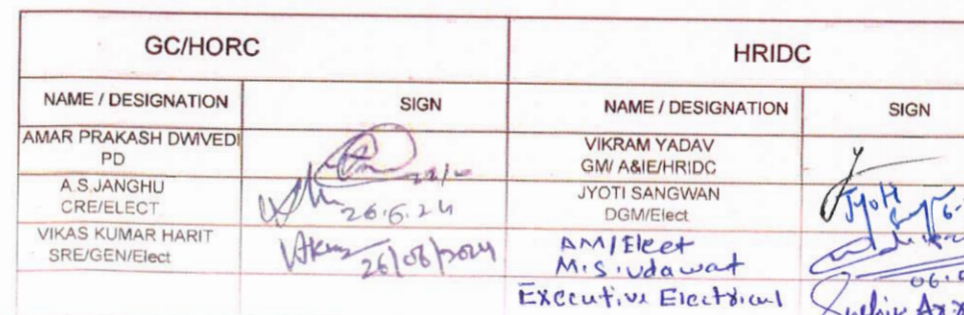 GC/HORC
HRIDC
NAME / DESIGNATION SIGN NAME / DESIGNATION SIGN
AMAR PRAKASH DWIVEDI
PD
VIKRAM YADAV
GM/ A&IE/HRIDC
A.S.JANGHU
CRE/ELECT
26.6.24
JYOTI SANGWAN
DGM/Elect
Jyoti
VIKAS KUMAR HARIT
SRE/GEN/Elect
Vikas
26/06/2024
AM/Elect
M.S.udawat
Executive Electrical